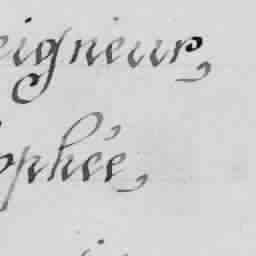 eigneur,
ophée,